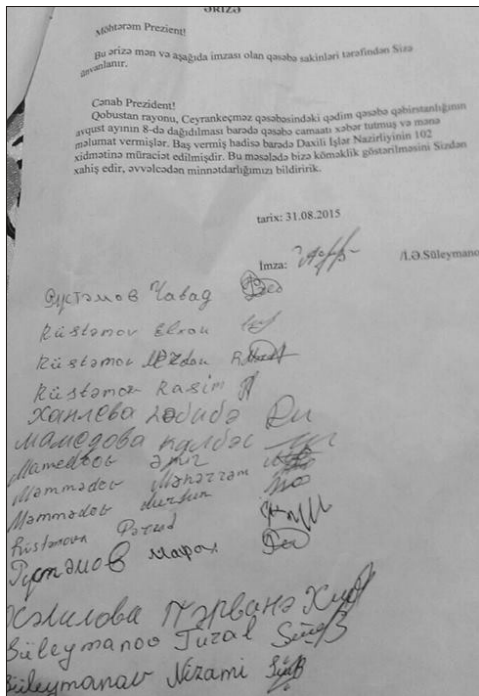 ƏRİZƏ
Möhtərəm Prezient!
Bu ərizə mən və aşağıda imzası olan qəsəbə sakinləri tərəfindən Sizə
ünvanlanır.
Cənab Prezident!
Qobustan rayonu, Ceyrankeçməz qəsəbəsindəki qədim qəsəbə qəbirstanlığının
avqust ayının 8-də dağıdılması barədə qəsəbə camaatı xəbər tutmuş və mənə
məlumat vermişlər. Baş vermiş hadisə barədə Daxili İşlər Nazirliyinin 102
xidmətinə müraciət edilmişdir. Bu məsələdə bizə köməklik göstərilməsini Sizdən
xahiş edir, əvvəlcədən minnətdarlığımızı bildiririk.
tarix: 31.08.2015
İmza: /İ.Ə.Süleymano
Рүстәмов Чавад
Rüstəmov Elxan
Rüstəmov
Rüstəmov Rasim
Ханлева
Мамедова
Mamedov
Məmmədov Məhərrəm
Məmmədov Dursun
Rüstəmova
Рүстәмов
Хәлилова Пәрванә
Süleymanov Tural
Süleymanov Nizami